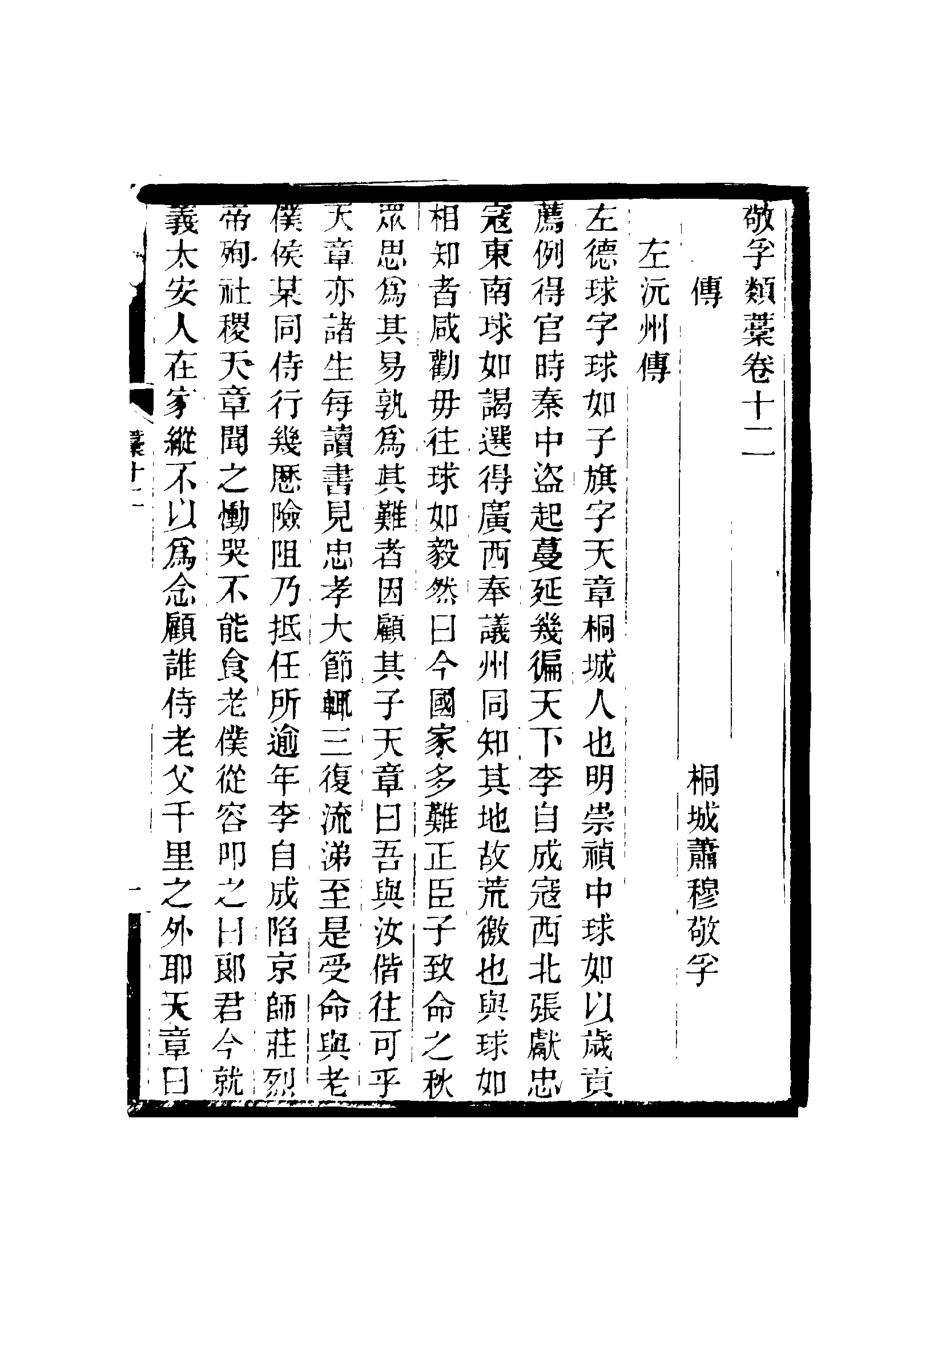 敬孚類藁卷十二
傳
桐城蕭穆敬孚
左沅州傳
左德球字球如子旗字天章桐城人也明崇禎中球如以歲貢
薦例得官時秦中盜起蔓延幾徧天下李自成寇西北張獻忠
寇東南球如謁選得廣西奉議州同知其地故荒徼也與球如
相知者咸勸毋往球如毅然曰今國家多難正臣子致命之秋
眾思爲其易孰爲其難者因顧其子天章曰吾與汝偕往可乎
天章亦諸生每讀書見忠孝大節輒三復流涕至是受命與老
僕侯某同侍行幾歷險阻乃抵任所逾年李自成陷京師莊烈
帝殉社稷天章聞之慟哭不能食老僕從容叩之曰郎君今就
義太安人在家縱不以爲念顧誰侍老父千里之外耶天章曰
藁十二
一